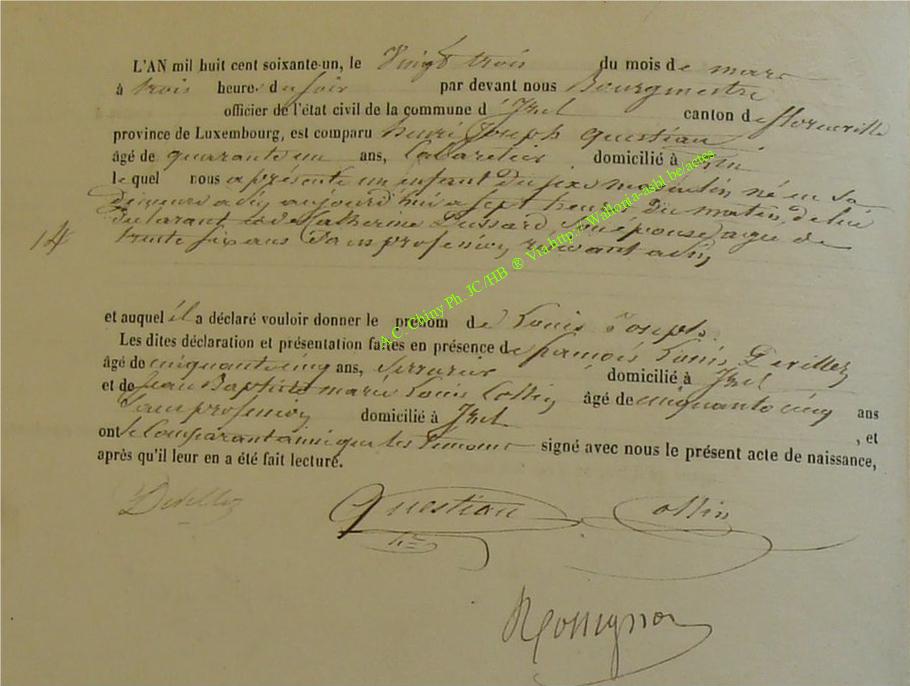 L'AN mil huit cent soixante-un, le Vingt trois du mois de mars
à trois heures du soir par devant nous Bourgmestre
officier de l'état civil de la commune d'Izel canton de florenville
province de Luxembourg, est comparu henri Joseph Questiau
âgé de quarante un ans, Cabaretier domicilié à
le quel nous a présenté un enfant du sexe masculin né en sa
demeure aujourd'hui a sept heures du matin, de lui
déclarant de Catherine son épouse, agée de
14 trente six ans sans profession
et auquel il a déclaré vouloir donner le prénom de Louis Joseph
Les dites déclaration et présentation faites en présence de françois Louis Devillez
âgé de cinquante cinq ans, Serrurier domicilié à Izel
et de Jean Baptiste marie Louis Collin âgé de cinquante cinq ans
Sans profession domicilié à Izel , et
ont le Comparant ainsi que les temoins signé avec nous le présent acte de naissance,
après qu'il leur en a été fait lecture.
Devillez Questiau Collin
Rossignon
A.C. Chiny Ph. JC/HB ® Via http://Wallonia-asbl.be/actes